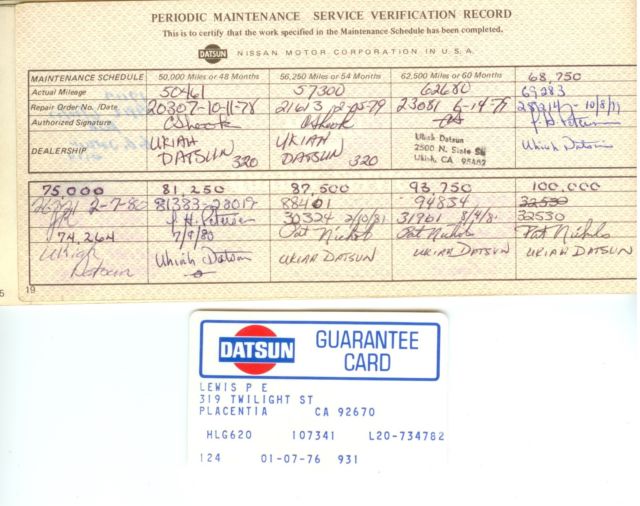 PERIODIC MAINTENANCE SERVICE VERIFICATION RECORD
This is to certify that the work specified in the Maintenance Schedule has been completed.
DATSUN NISSAN MOTOR CORPORATION IN U.S.A.
MAINTENANCE SCHEDULE 50,000 Miles or 48 Months 56,250 Miles or 54 Months 62,500 Miles or 60 Months 68,750
Actual Mileage 50461 57300 62680 69283
Repair Order No. /Date 20307-10-11-78 21613 23081 6-14-79 10/8/79
Authorized Signature
DEALERSHIP UKIAH DATSUN 320 UKIAH DATSUN 320 Ukiah Datsun Ukiah Datsun
2500 N. State St
Ukiah, CA 95482
75,000 81,250 87,500 93,750 100,000
2-7-80 81383-28019 88401 94834 32530
30324 2/10/81 31961 8/4/81 32530
74,264 7/9/80 Pat Nichols Pat Nichols Pat Nichols
Ukiah Datsun Ukiah Datsun UKIAH DATSUN UKIAH DATSUN UKIAH DATSUN
19
DATSUN GUARANTEE
CARD
LEWIS P E
319 TWILIGHT ST
PLACENTIA CA 92670
HLG620 107341 L20-734782
124 01-07-76 931